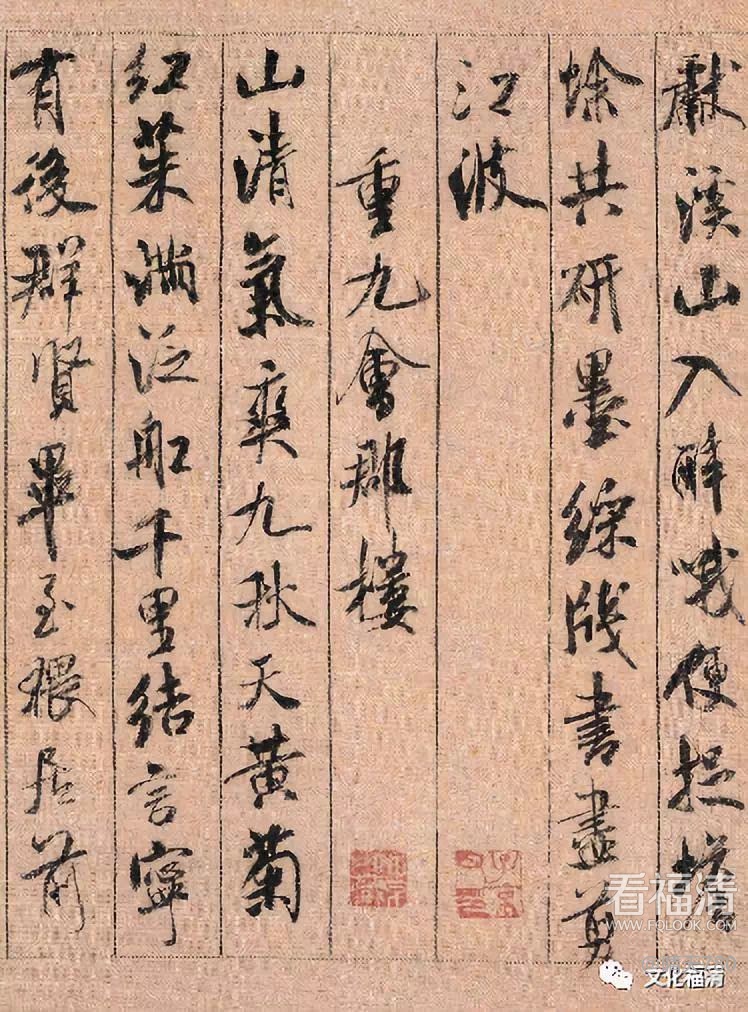 獻溪山入醉哦便捉蟾
蜍共研墨綵牋書盡剪
江波
重九會郡樓
山清氣爽九秋天黃菊
紅茱滿泛船千里結言寧
有後群賢畢至猥居前
看福清
WWW.FQLOOK.COM
文化福清